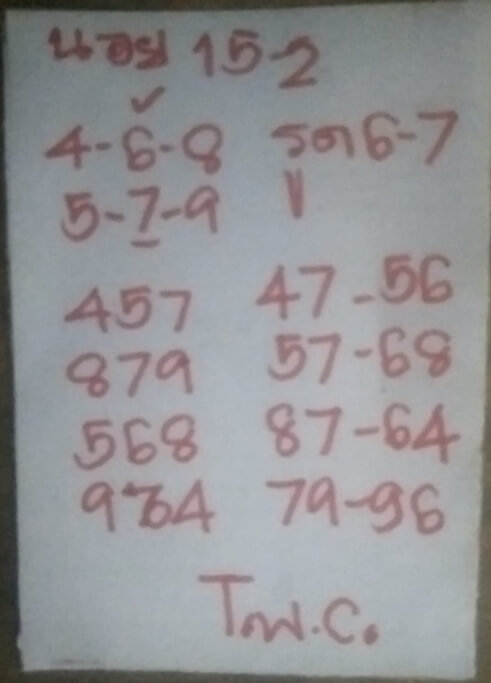 นอย 15-2
4-6-8 รถ 6-7
5-7-9
457 47-56
879 57-68
568 87-64
964 79-96